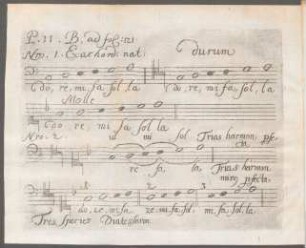 P. 11. B. ad fol: 121
Nro. 1. Exachord: nat: durum
do, re, mi, fa, sol, la do, re, mi, fa, sol, la
Molle
do, re, mi fa sol la
Nro. 2. ut mi sol Trias harmon. pfe-
cta.
re fa, la, Trias harmon.
1 2 3
do, re, mi, fa re, mi, fa, sol. mi, fa, sol, la.
Tres Species Diatessaron